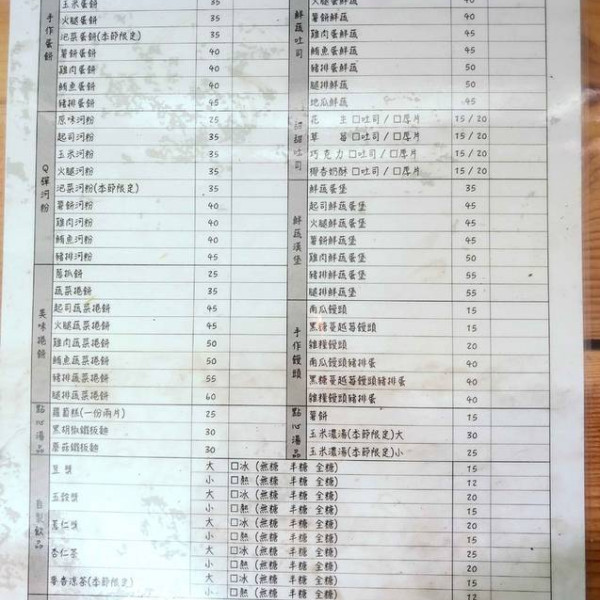 手作蛋餅
玉米蛋餅 35
火腿蛋餅 35
泡菜蛋餅(季節限定) 35
薯餅蛋餅 40
雞肉蛋餅 40
鮪魚蛋餅 40
豬排蛋餅 45
Q彈河粉
原味河粉 25
起司河粉 35
玉米河粉 35
火腿河粉 35
泡菜河粉(季節限定) 35
薯餅河粉 40
雞肉河粉 40
鮪魚河粉 40
豬排河粉 45
美味捲餅
蔥抓餅 25
蔬菜捲餅 35
起司蔬菜捲餅 45
火腿蔬菜捲餅 45
雞肉蔬菜捲餅 50
鮪魚蔬菜捲餅 50
豬排蔬菜捲餅 55
腿排蔬菜捲餅 60
點心湯品
蘿蔔糕(一份兩片) 25
黑胡椒鐵板麵 30
蘑菇鐵板麵 30
鮮蔬吐司
火腿蛋鮮蔬 40
薯餅鮮蔬 40
鮪魚蛋鮮蔬 45
豬排蛋鮮蔬 50
腿排鮮蔬 50
地瓜鮮蔬 45
吐司
花 生 □吐司/□厚片 15/20
草 莓 □吐司/□厚片 15/20
巧克力 □吐司/□厚片 15/20
椰香奶酥 □吐司/□厚片 15/20
鮮蔬漢堡
鮮蔬蛋堡 35
起司鮮蔬蛋堡 45
火腿鮮蔬蛋堡 45
薯餅鮮蔬蛋堡 45
雞肉鮮蔬蛋堡 50
豬排鮮蔬蛋堡 55
腿排鮮蔬堡 55
手作饅頭
南瓜饅頭 15
黑糖蔓越莓饅頭 15
雜糧饅頭 20
南瓜饅頭豬排蛋 40
黑糖蔓越莓饅頭豬排蛋 40
雜糧饅頭豬排蛋 40
點心湯品
薯餅 15
玉米濃湯(季節限定)大 30
玉米濃湯(季節限定)小 25
自製飲品
豆漿 大 □冰 (無糖 半糖 全糖) 15
小 □熱 (無糖 半糖 全糖) 12
五穀漿 大 □冰 (無糖 半糖 全糖) 20
小 □熱 (無糖 半糖 全糖) 15
薏仁漿 大 □冰 (無糖 半糖 全糖) 20
小 □熱 (無糖 半糖 全糖) 15
杏仁茶 大 □冰 (無糖 半糖 全糖) 25
小 □熱 (無糖 半糖 全糖) 20
麥香涼茶(季節限定) 大 □冰 (無糖 半糖 全糖) 15
小 □熱 (無糖 半糖 全糖) 12